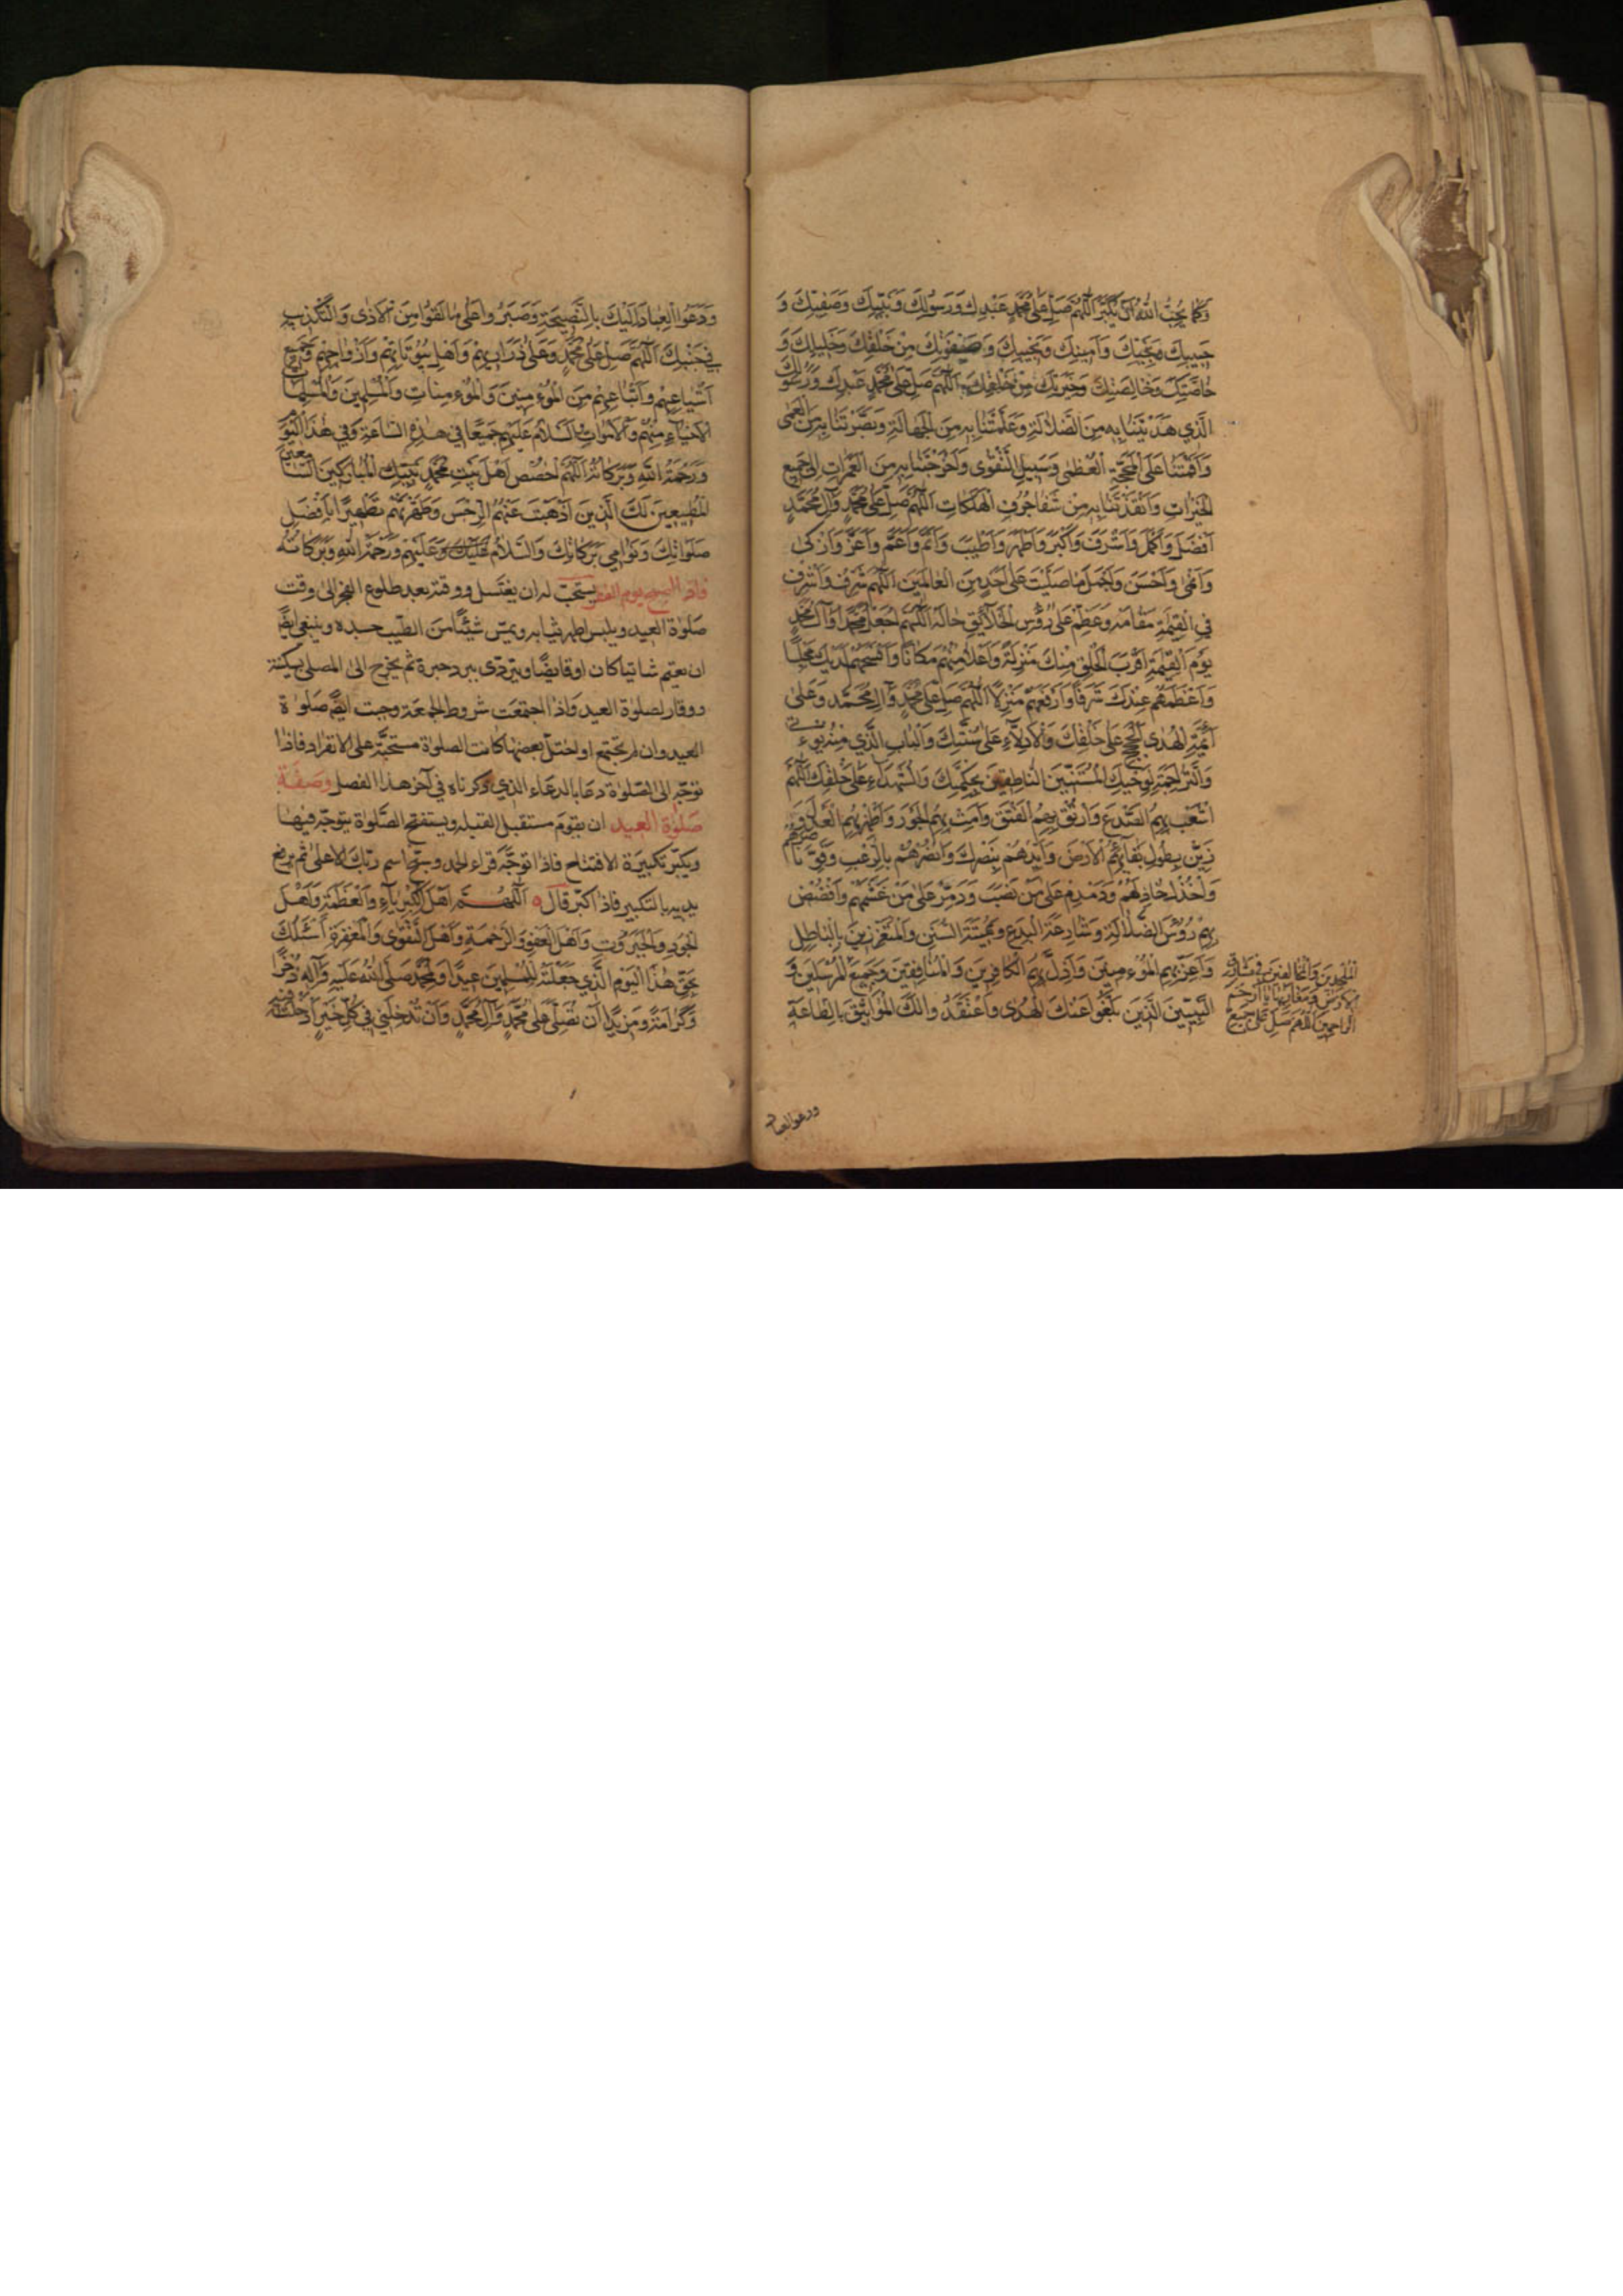 وَكَمَا يُحِبُّ اللّٰهُ اَنْ يُكَبَّرَ اَللّٰهُمَّ صَلِّ عَلٰى مُحَمَّدٍ عَبْدِكَ وَرَسُوْلِكَ وَنَبِيِّكَ وَصَفِيِّكَ وَ
حَبِيبِكَ وَنَجِيِّكَ وَاَمِينِكَ وَنَجِيبِكَ وَصَفْوَتِكَ مِنْ خَلْقِكَ وَخَلِيلِكَ وَ
خَاصَّتِكَ وَخَالِصَتِكَ وَخِيَرَتِكَ مِنْ خَلْقِكَ اَللّٰهُمَّ صَلِّ عَلٰى مُحَمَّدٍ عَبْدِكَ وَرَسُولِكَ
الَّذِي هَدَيْتَنَا بِهِ مِنَ الضَّلَالَةِ وَعَلَّمْتَنَا بِهِ مِنَ الْجَهَالَةِ وَبَصَّرْتَنَا بِهِ مِنَ الْعَمٰى
وَاَقَمْتَنَا عَلَى الْمَحَجَّةِ الْعُظْمٰى وَسَبِيلِ التَّقْوٰى وَاَخْرَجْتَنَا بِهِ مِنَ الْغَمَرَاتِ اِلٰى جَمِيعِ
الْخَيْرَاتِ وَاَنْقَذْتَنَا بِهِ مِنْ شَفَا جُرُفِ الْهَلَكَاتِ اَللّٰهُمَّ صَلِّ عَلٰى مُحَمَّدٍ وَآلِ مُحَمَّدٍ
اَفْضَلَ وَاَكْمَلَ وَاَشْرَفَ وَاَكْبَرَ وَاَطْهَرَ وَاَطْيَبَ وَاَتَمَّ وَاَعَمَّ وَاَعَزَّ وَاَزْكٰى
وَاَنْمٰى وَاَحْسَنَ وَاَجْمَلَ مَا صَلَّيْتَ عَلٰى اَحَدٍ مِنَ الْعَالَمِينَ اَللّٰهُمَّ شَرِّفْ
فِي الْقِيٰمَةِ مَقَامَهُ وَعَظِّمْ عَلٰى رُؤُسِ الْخَلَائِقِ حَالَهُ اَللّٰهُمَّ اجْعَلْ مُحَمَّدًا وَآلَ مُحَمَّدٍ
يَوْمَ الْقِيٰمَةِ اَقْرَبَ الْخَلْقِ مِنْكَ مَنْزِلَةً وَاَعْلَاهُمْ مَكَانًا وَاَفْسَحَهُمْ لَدَيْكَ مَجْلِسًا
وَاَعْظَمَهُمْ عِنْدَكَ شَرَفًا وَاَرْفَعَهُمْ مَنْزِلًا اَللّٰهُمَّ صَلِّ عَلٰى مُحَمَّدٍ وَآلِ مُحَمَّدٍ وَعَلٰى
اَئِمَّةِ الْهُدٰى الْحُجَجِ عَلٰى خَلْقِكَ وَالْاَدِلَّاءِ عَلٰى سُنَّتِكَ وَالْبَابِ الَّذِي مِنْهُ يُؤْتٰى
وَالتَّرَاجِمَةِ لِوَحْيِكَ الْمُسْتَنِّينَ النَّاطِقِينَ بِحِكْمَتِكَ وَالشُّهَدَاءِ عَلٰى خَلْقِكَ اَللّٰهُمَّ
اشْعَبْ بِهِمُ الصَّدْعَ وَارْتُقْ بِهِمُ الْفَتْقَ وَاَمِتْ بِهِمُ الْجَوْرَ وَاَظْهِرْ بِهِمُ الْعَدْلَ وَ
زَيِّنْ بِطُولِ بَقَائِهِمُ الْاَرْضَ وَاَيِّدْهُمْ بِنَصْرِكَ وَانْصُرْهُمْ بِالرُّعْبِ وَقَوِّ نَاصِرَهُمْ
وَاخْذُلْ خَاذِلَهُمْ وَدَمْدِمْ عَلٰى مَنْ نَصَبَ وَدَمِّرْ عَلٰى مَنْ غَشَمَهُمْ وَافْضُضْ
بِهِمْ رُؤُسَ الضَّلَالَةِ وَشَارِعَةَ الْبِدَعِ وَمُمِيتَةَ السُّنَنِ وَالْمُتَعَزِّزِينَ بِالْبَاطِلِ
وَاَعِزَّ بِهِمُ الْمُؤْمِنِينَ وَاَذِلَّ بِهِمُ الْكَافِرِينَ وَالْمُنَافِقِينَ وَجَمِيعَ
الْمُلْحِدِينَ وَالْمُخَالِفِينَ فِي مَشَارِقِ
الْاَرْضِ وَمَغَارِبِهَا يَا اَرْحَمَ
الرَّاحِمِينَ اَللّٰهُمَّ صَلِّ عَلٰى جَمِيعِ
الْمُرْسَلِينَ وَ
النَّبِيِّينَ الَّذِينَ بَلَّغُوا عَنْكَ الْهُدٰى وَاعْتَقَدُوا لَكَ الْمَوَاثِيقَ بِالطَّاعَةِ
ودعوا العباد
وَدَعَوُا الْعِبَادَ اِلَيْكَ بِالنَّصِيحَةِ وَصَبَرُوا عَلٰى مَا لَقُوا مِنَ الْاَذٰى وَالتَّكْذِيبِ
فِي جَنْبِكَ اَللّٰهُمَّ صَلِّ عَلٰى مُحَمَّدٍ وَعَلٰى ذَرَارِيهِمْ وَاَهْلِ بُيُوتَاتِهِمْ وَاَزْوَاجِهِمْ وَجَمِيعِ
اَشْيَاعِهِمْ وَاَتْبَاعِهِمْ مِنَ الْمُؤْمِنِينَ وَالْمُؤْمِنَاتِ وَالْمُسْلِمِينَ وَالْمُسْلِمَاتِ
الْاَحْيَاءِ مِنْهُمْ وَالْاَمْوَاتِ السَّلَامُ عَلَيْهِمْ جَمِيعًا فِي هٰذِهِ السَّاعَةِ وَفِي هٰذَا الْيَوْمِ
وَرَحْمَةُ اللّٰهِ وَبَرَكَاتُهُ اَللّٰهُمَّ اخْصُصْ اَهْلَ بَيْتِ مُحَمَّدٍ نَبِيِّكَ الْمُبَارَكِينَ السَّامِعِينَ
الْمُطِيعِينَ لَكَ الَّذِينَ اَذْهَبْتَ عَنْهُمُ الرِّجْسَ وَطَهَّرْتَهُمْ تَطْهِيرًا بِاَفْضَلِ
صَلَوَاتِكَ وَنَوَامِي بَرَكَاتِكَ وَالسَّلَامُ عَلَيْكَ وَعَلَيْهِمْ وَرَحْمَةُ اللّٰهِ وَبَرَكَاتُهُ
فاذا اصبح يوم الفطر يستحبّ له ان يغتسل ووقته بعد طلوع الفجر الى وقت
صلوة العيد ويلبس اطهر ثيابه ويمسّ شيئًا من الطّيب جسده وينبغي ايضًا
ان يعتم شاتياكان او قايضًا ويتردّى ببرد حبرة ثم يخرج الى المصلى بسكينة
ووقار لصلوة العيد واذا اجتمعت شروط الجمعة وجبت ايضًا صلوة
العيد وان لم تجتمع او اختلّ بعضها كانت الصلوة مستحبّة على الانفراد فاذا
توجّه الى الصّلوة دعا بالدعاء الذي ذكرناه في آخر هذا الفصل وصفة
صلوة العيد ان يقوم مستقبل القبلة ويستفتح الصّلوة يتوجّه فيها
ويكبّر تكبيرة الافتتاح فاذا توجّه قراء الحمد وسبّح اسم ربّك الاعلى ثم يرفع
يديه بالتكبير فاذا كبّر قال اَللّٰهُمَّ اَهْلَ الْكِبْرِيَاءِ وَالْعَظَمَةِ وَاَهْلَ
الْجُودِ وَالْجَبَرُوتِ وَاَهْلَ الْعَفْوِ وَالرَّحْمَةِ وَاَهْلَ التَّقْوٰى وَالْمَغْفِرَةِ اَسْئَلُكَ
بِحَقِّ هٰذَا الْيَوْمِ الَّذِي جَعَلْتَهُ لِلْمُسْلِمِينَ عِيدًا وَلِمُحَمَّدٍ صَلَّى اللّٰهُ عَلَيْهِ وَآلِهِ ذُخْرًا
وَكَرَامَةً وَمَزِيدًا اَنْ تُصَلِّيَ عَلٰى مُحَمَّدٍ وَآلِ مُحَمَّدٍ وَاَنْ تُدْخِلَنِي فِي كُلِّ خَيْرٍ اَدْخَلْتَ فِيهِ